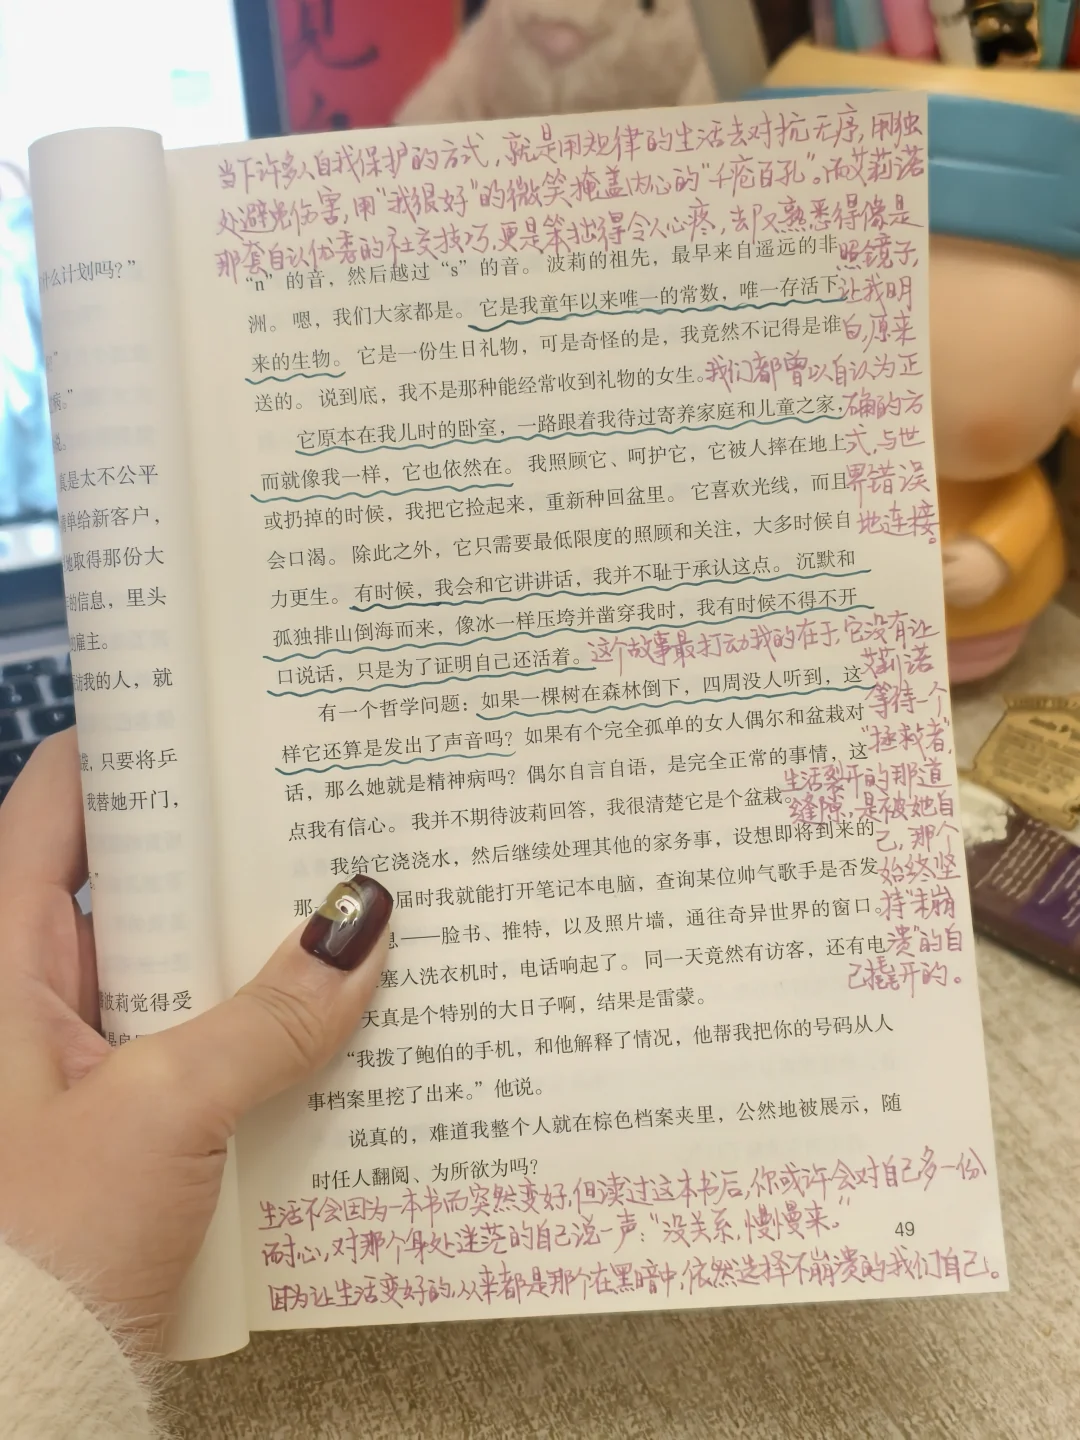 当下许多人自我保护的方式，就是用规律的生活去对抗无序，用独
处避免伤害，用“我很好”的微笑掩盖内心的“千疮百孔”。而艾莉诺
那套自认优秀的社交技巧，更是笨拙得令人心疼，却又熟悉得像是
照镜子，
让我明
白，原来
我们都曾以自认为正
确的方
式，与世
界错误
地连接。
“n”的音，然后越过“s”的音。波莉的祖先，最早来自遥远的非
洲。嗯，我们大家都是。它是我童年以来唯一的常数，唯一存活下
来的生物。它是一份生日礼物，可是奇怪的是，我竟然不记得是谁
送的。说到底，我不是那种能经常收到礼物的女生。
它原本在我儿时的卧室，一路跟着我待过寄养家庭和儿童之家，
而就像我一样，它也依然在。我照顾它、呵护它，它被人摔在地上
或扔掉的时候，我把它捡起来，重新种回盆里。它喜欢光线，而且
会口渴。除此之外，它只需要最低限度的照顾和关注，大多时候自
力更生。有时候，我会和它讲讲话，我并不耻于承认这点。沉默和
孤独排山倒海而来，像冰一样压垮并凿穿我时，我有时候不得不开
口说话，只是为了证明自己还活着。
这个故事最打动我的在于，它没有让
艾莉诺
等待一个
“拯救者”，
生活裂开的那道
缝隙，是被她自
己，那个
始终坚
持“未崩
溃”的自
己撬开的。
有一个哲学问题：如果一棵树在森林倒下，四周没人听到，这
样它还算是发出了声音吗？如果有个完全孤单的女人偶尔和盆栽对
话，那么她就是精神病吗？偶尔自言自语，是完全正常的事情，这
点我有信心。我并不期待波莉回答，我很清楚它是个盆栽。
我给它浇浇水，然后继续处理其他的家务事，设想即将到来的
那一
届时我就能打开笔记本电脑，查询某位帅气歌手是否发
息——脸书、推特，以及照片墙，通往奇异世界的窗口。
塞入洗衣机时，电话响起了。同一天竟然有访客，还有电
天真是个特别的大日子啊，结果是雷蒙。
“我拨了鲍伯的手机，和他解释了情况，他帮我把你的号码从人
事档案里挖了出来。”他说。
说真的，难道我整个人就在棕色档案夹里，公然地被展示，随
时任人翻阅、为所欲为吗？
生活不会因为一本书而突然变好，但读过这本书后，你或许会对自己多一份
耐心，对那个身处迷茫的自己说一声：“没关系，慢慢来。”
因为让生活变好的，从来都是那个在黑暗中，依然选择不崩溃的我们自己。
49
什么计划吗？”
病。”
说。
真是太不公平
单给新客户，
地取得那份大
的信息，里头
雇主。
访我的人，就
，只要将乒
我替她开门，
波莉觉得受